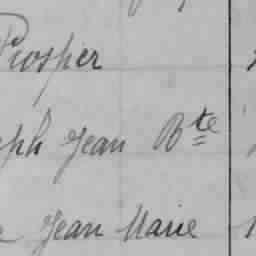 Prosper
eph Jean Bte
e Jean Marie